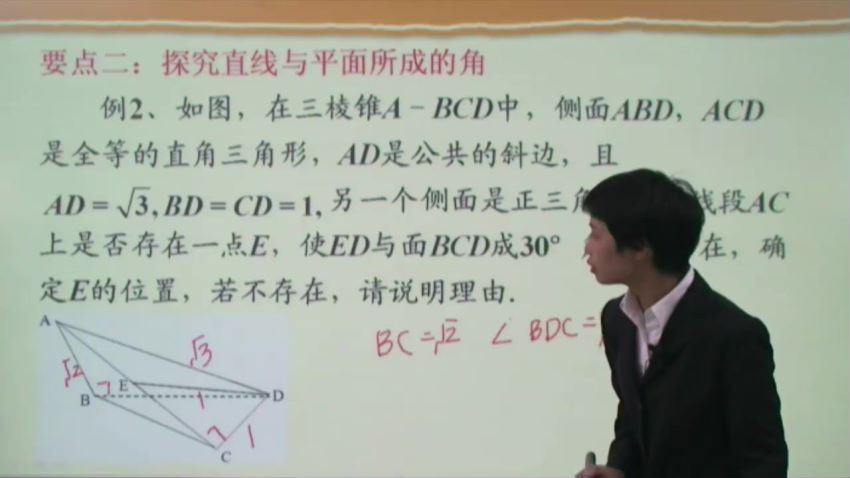 要点二：探究直线与平面所成的角
例2、如图，在三棱锥A－BCD中，侧面ABD，ACD
是全等的直角三角形，AD是公共的斜边，且
AD＝√3,BD＝CD＝1,另一个侧面是正三角 线段AC
上是否存在一点E，使ED与面BCD成30° 在，确
定E的位置，若不存在，请说明理由.
BC=√2 ∠BDC=
A
√3
√2
E
B
1
D
1
C